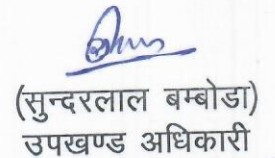 (सुन्दरलाल बम्बोडा)
उपखण्ड अधिकारी